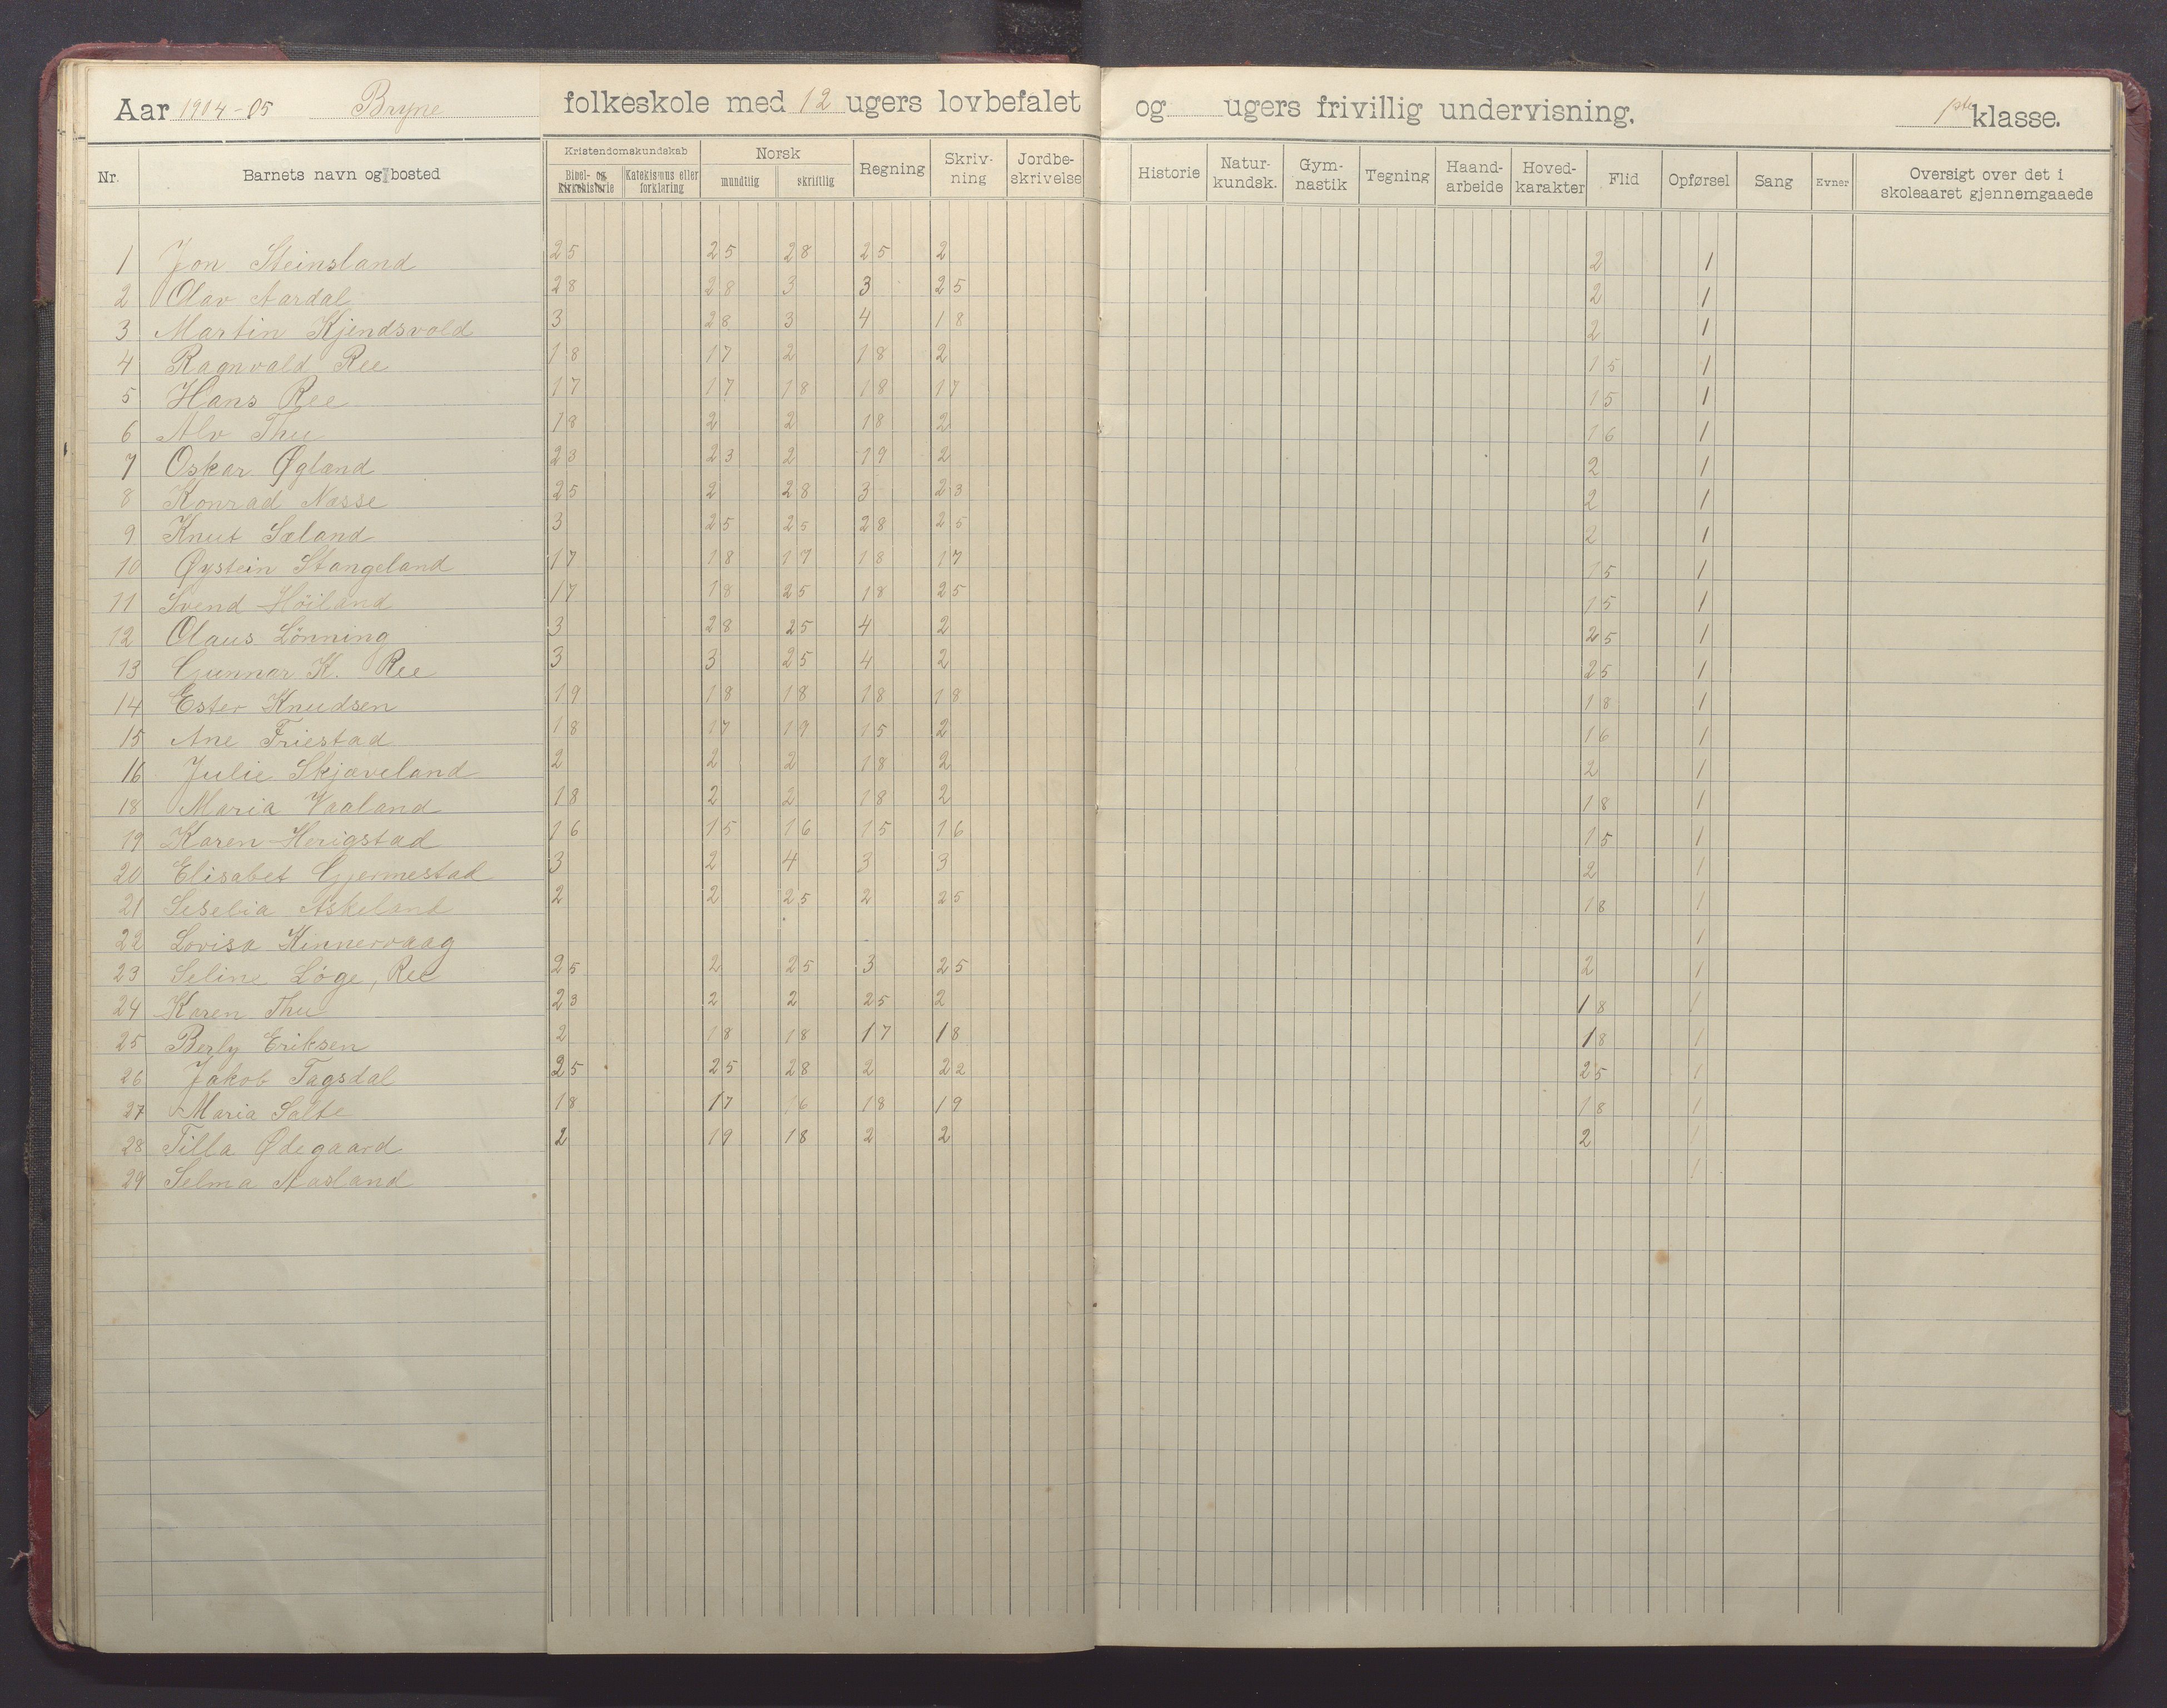 Aar 1904-05 Bryne folkeskole med 12 ugers lovbefalet og ugers frivillig undervisning. 1ste klasse.
Kristendomskundskab Norsk
Nr. Barnets navn og bosted Bibel- og kirkehistorie Katekismus eller forklaring mundtlig skriftlig Regning Skriv-ning Jordbe-skrivelse Historie Natur-kundsk. Gym-nastik Tegning Haand-arbeide Hoved-karakter Flid Opførsel Sang Evner Oversigt over det i skoleaaret gjennemgaaede
1 Jon Steinsland 25 25 28 25 2 2 1
2 Olav Aardal 28 28 3 3 25 2 1
3 Martin Kjendsvold 3 28 3 4 18 2 1
4 Ragnvald Ree 18 17 2 18 2 15 1
5 Hans Ree 17 17 18 18 17 15 1
6 Alv Thu 18 2 2 18 2 16 1
7 Oskar Øgland 23 23 2 19 2 2 1
8 Konrad Nasse 25 2 28 3 23 2 1
9 Knut Sæland 3 25 25 28 25 2 1
10 Øystein Stangeland 17 18 17 18 17 15 1
11 Svend Höiland 17 18 25 18 25 15 1
12 Olaus Lönning 3 28 25 4 2 25 1
13 Gunnar K. Ree 3 3 25 4 2 25 1
14 Ester Knudsen 19 18 18 18 18 18 1
15 Ane Friestad 18 17 19 15 2 16 1
16 Julie Skjæveland 2 2 2 18 2 2 1
18 Maria Vaaland 18 2 2 18 2 18 1
19 Karen Herigstad 16 15 16 15 16 15 1
20 Elisabet Gjermestad 3 2 4 3 3 2 1
21 Seselia Askeland 2 2 25 2 25 18 1
22 Lovisa Kinnervaag 1
23 Seline Löge, Ree 25 2 25 3 25 2 1
24 Karen Thu 23 2 2 25 2 18 1
25 Berly Eriksen 2 18 18 17 18 18 1
26 Jakob Tagsdal 25 25 28 2 22 25 1
27 Maria Salte 18 17 16 18 19 18 1
28 Tilla Ødegaard 2 19 18 2 2 2 1
29 Selma Aasland 1